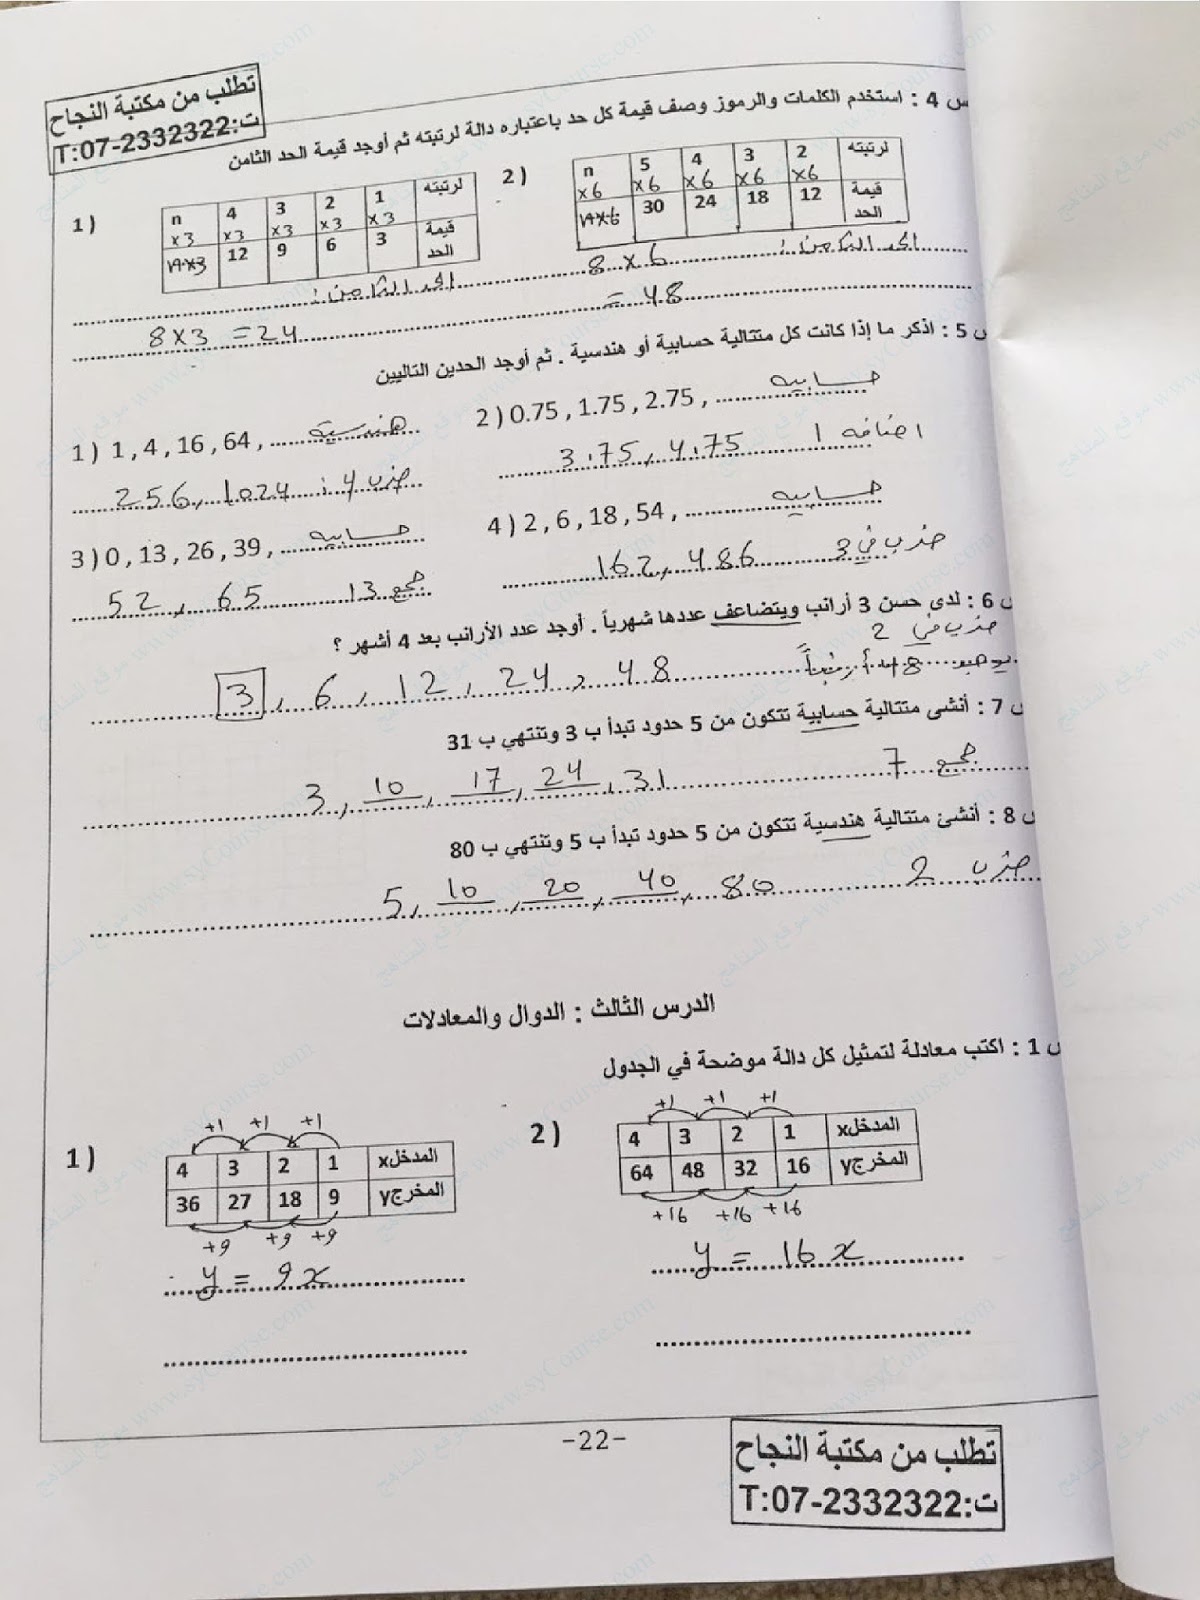 تطلب من مكتبة النجاح
ت:T:07-2332322
س 4 : استخدم الكلمات والرموز وصف قيمة كل حد باعتباره دالة لرتبته ثم أوجد قيمة الحد الثامن
1 )
لرتبته 1 2 3 4 n
×3 ×3 ×3 ×3 ×3
قيمة الحد 3 6 9 12 n×3
2 )
لرتبته 2 3 4 5 n
×6 ×6 ×6 ×6 ×6
قيمة الحد 12 18 24 30 n×6
الحد الثامن : 8 × 6
= 48
الحد الثامن :
8 × 3 = 24
س 5 : اذكر ما إذا كانت كل متتالية حسابية أو هندسية . ثم أوجد الحدين التاليين
1 ) 1 , 4 , 16 , 64 , هندسية
ضرب 4 : 256, 1024
2 ) 0.75 , 1.75 , 2.75 , حسابيه
اضافه 1 3.75, 4.75
3 ) 0 , 13 , 26 , 39 , حسابيه
جمع 13 52 , 65
4 ) 2 , 6 , 18 , 54 , حسابيه
ضرب في 3 162, 486
س 6 : لدى حسن 3 أرانب ويتضاعف عددها شهرياً . أوجد عدد الأرانب بعد 4 أشهر ؟
ضرب في 2
3 , 6 , 12 , 24 , 48 يوجد 48 أرنباً
س 7 : أنشى متتالية حسابية تتكون من 5 حدود تبدأ ب 3 وتنتهي ب 31
3 , 10 , 17 , 24 , 31 جمع 7
س 8 : أنشئ متتالية هندسية تتكون من 5 حدود تبدأ ب 5 وتنتهي ب 80
5 , 10 , 20 , 40 , 80 ضرب 2
الدرس الثالث : الدوال والمعادلات
س 1 : اكتب معادلة لتمثيل كل دالة موضحة في الجدول
1 )
+1 +1 +1
المدخلx 1 2 3 4
المخرجy 9 18 27 36
+9 +9 +9
y = 9x
2 )
+1 +1 +1
المدخلx 1 2 3 4
المخرجy 16 32 48 64
+16 +16 +16
y = 16x
-22-
تطلب من مكتبة النجاح
ت:T:07-2332322
موقع المناهج www.syCourse.com